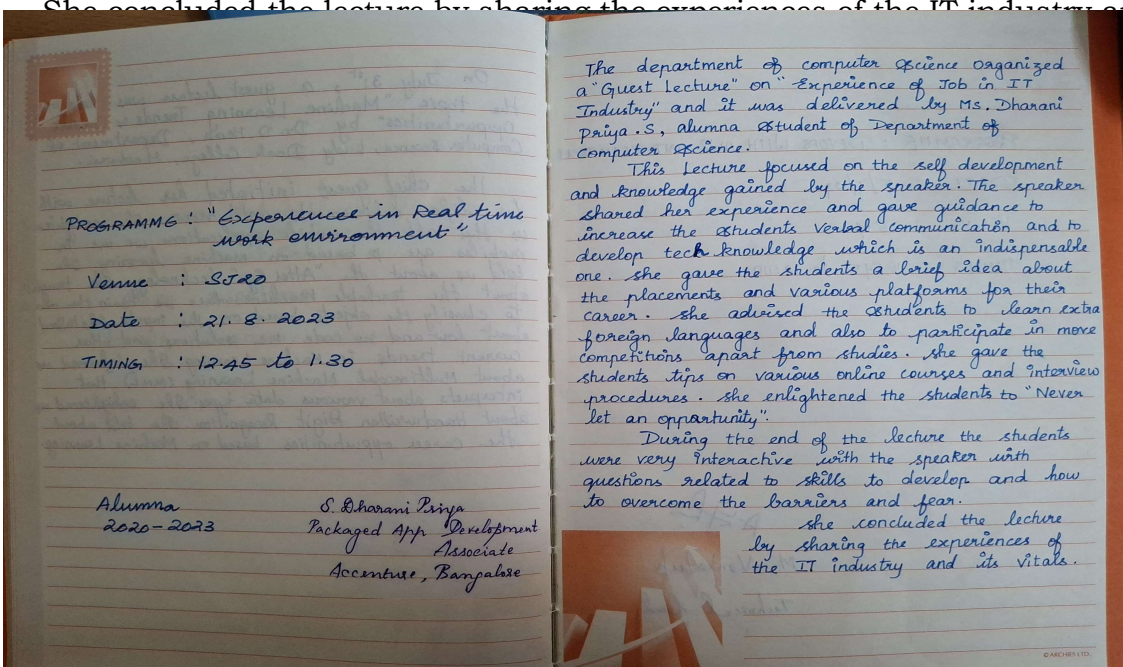 She concluded the lecture by sharing the experiences of the IT industry
PROGRAMME : "Experiences in Real time
work environment"
Venue : SJ20
Date : 21.8.2023
TIMING : 12.45 to 1.30
Alumna
2020-2023
S. Dharani Priya
Packaged App Development
Associate
Accenture, Bangalore
The department of computer science organized
a "Guest Lecture" on "Experience of Job in IT
Industry" and it was delivered by Ms. Dharani
Priya.S, alumna student of Department of
Computer Science.
This Lecture focused on the self development
and knowledge gained by the speaker. The speaker
shared her experience and gave guidance to
increase the students verbal communication and to
develop tech knowledge which is an indispensable
one. she gave the students a brief idea about
the placements and various platforms for their
career. she advised the students to learn extra
foreign languages and also to participate in more
competitions apart from studies. she gave the
students tips on various online courses and interview
procedures. she enlightened the students to "Never
let an opportunity".
During the end of the lecture the students
were very interactive with the speaker with
questions related to skills to develop and how
to overcome the barriers and fear.
she concluded the lecture
by sharing the experiences of
the IT industry and its vitals.
© ARCHIES LTD.